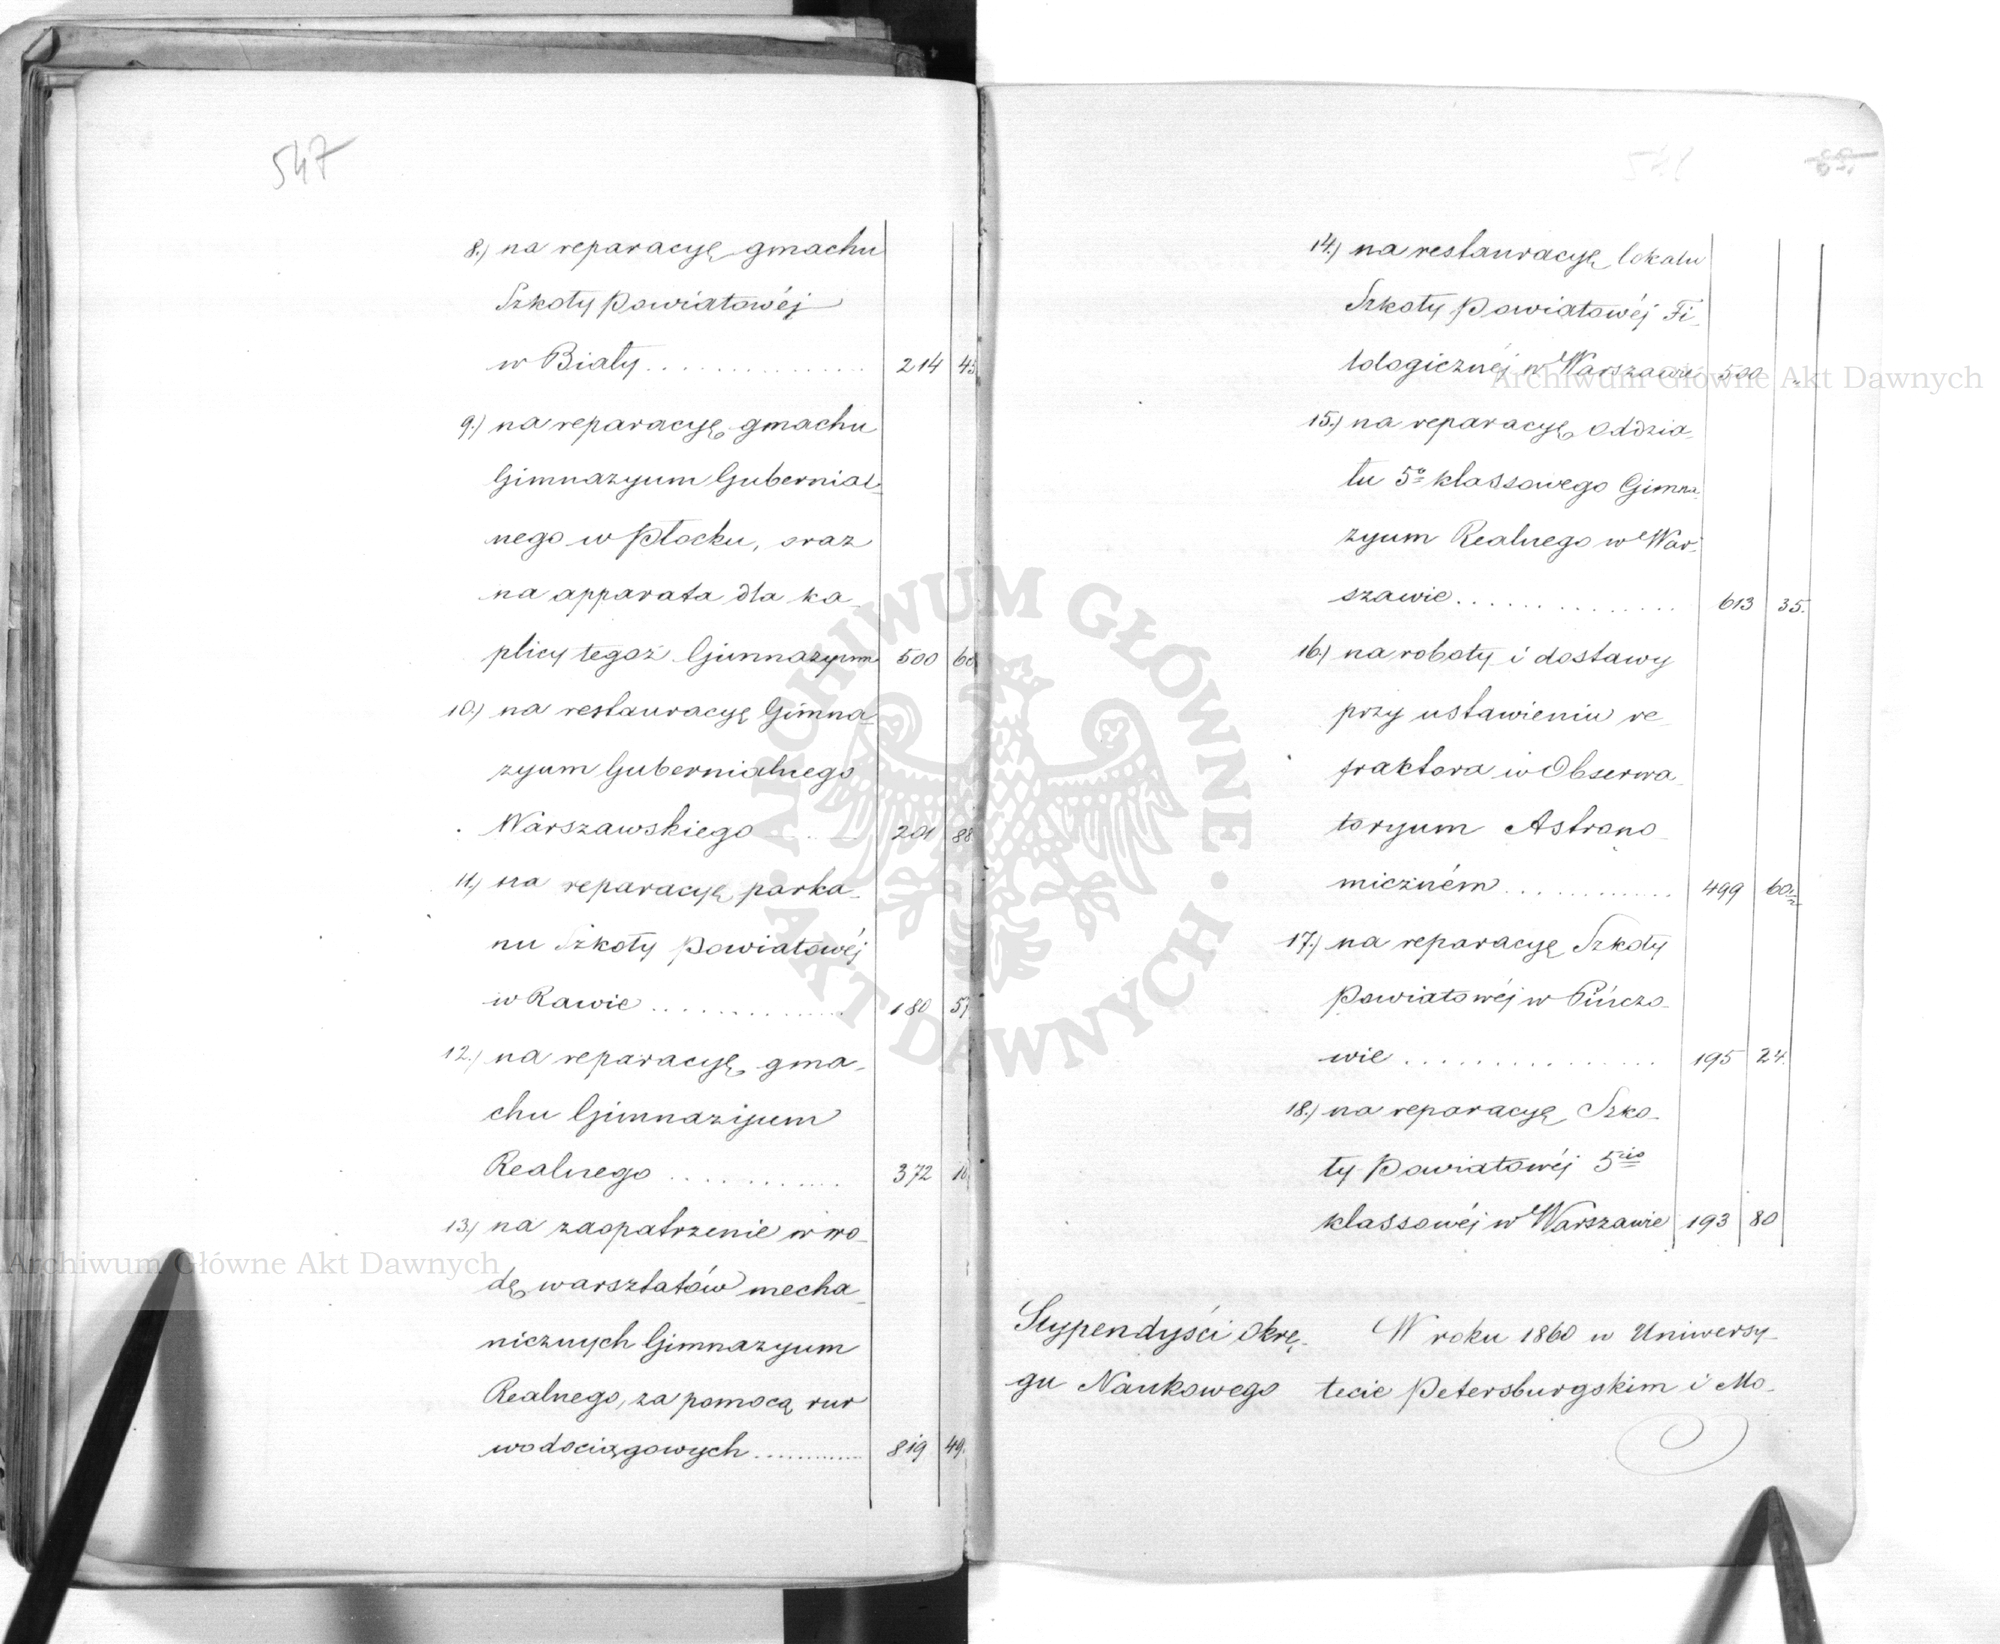 547
8.) na reparacyę gmachu
Szkoły Powiatowéj
w Biały . . . . . . . . . . . . . . 214 45
9.) na reparacyę gmachu
Gimnazyum Gubernial-
nego w Płocku, oraz
na apparata dla ka-
plicy tegoż Gimnazyum 500 60
10.) na restauracyę Gimna-
zyum Gubernialnego
Warszawskiego . . . . 201 88
11.) na reparacyę parka-
nu Szkoły Powiatowéj
w Rawie . . . . . . . . . . . . . . 180 57
12.) na reparacyę gma-
chu Gimnazyum
Realnego . . . . . . . . . . . . 372 16
13.) na zaopatrzenie w wo-
dę warsztatów mecha-
nicznych Gimnazyum
Realnego, za pomocą rur
wodociągowych . . . . . . . . . . . . 819 49.
548
14.) na restauracyę lokalu
Szkoły Powiatowéj Fi-
lologicznéj w Warszawie 500 "
15.) na reparacyę Oddzia-
łu 5o klassowego Gimna-
zyum Realnego w War-
szawie . . . . . . . . . . . . . . 613 35.
16.) na roboty i dostawy
przy ustawieniu re-
fraktora w Obserwa-
toryum Astrono-
miczném . . . . . . . . . . . . 499 60½
17.) na reparacyę Szkoły
Powiatowéj w Pińczo-
wie . . . . . . . . . . . . . . . 195 24.
18.) na reparacyę Szko-
ły Powiatowéj 5cio
klassowéj w Warszawie 193 80
Stypendyści Okrę-
gu Naukowego
W roku 1860 w Uniwersy-
tecie Petersburgskim i Mo-
Archiwum Główne Akt Dawnych
Archiwum Główne Akt Dawnych
ARCHIWUM GŁÓWNE · AKT DAWNYCH ·